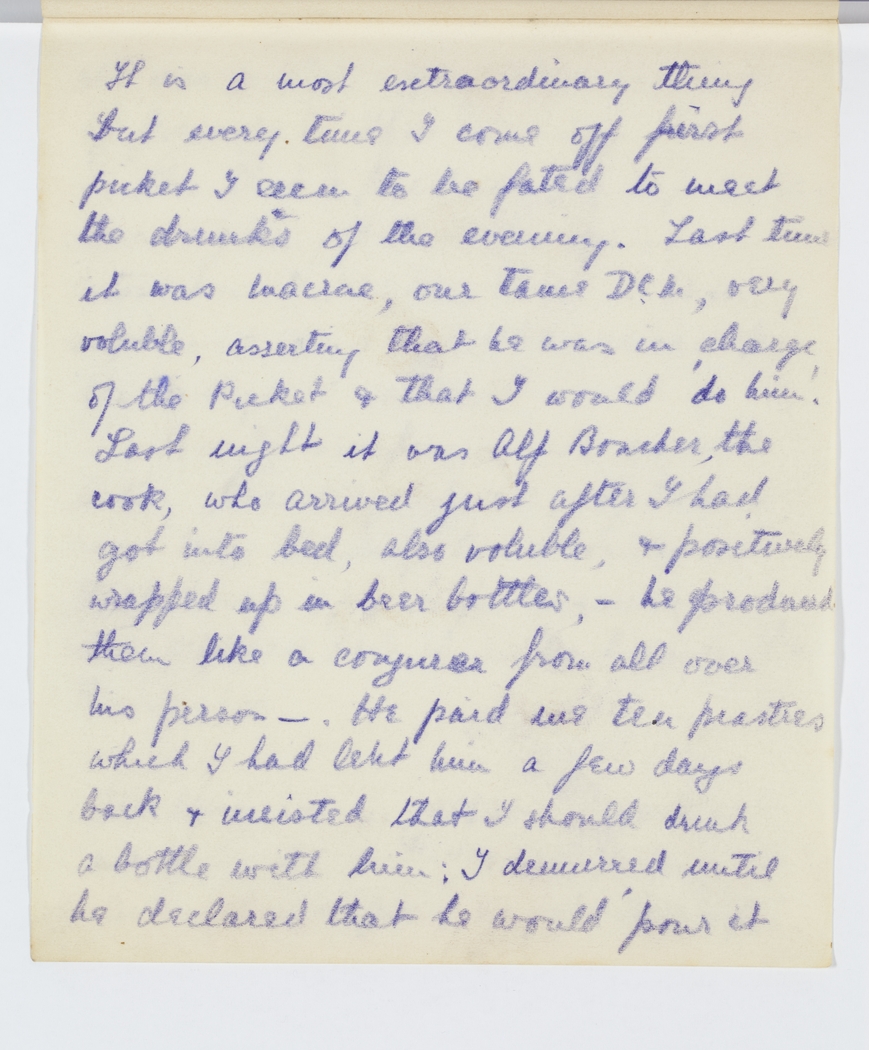 It is a most extraordinary thing
but every time I come off first
picket I seem to be fated to meet
the drunks of the evening. Last time
it was Macrae, our tame DCM, very
voluble, asserting that he was in charge
of the Picket & that I would 'do him'.
Last night it was Alf Boucher, the
cook, who arrived just after I had
got into bed, also voluble, & positively
wrapped up in beer bottles, – he produced
them like a conjurer from all over
his person –. He paid me ten piastres
which I had lent him a few days
back & insisted that I should drink
a bottle with him; I demurred until
he declared that he would 'pour it